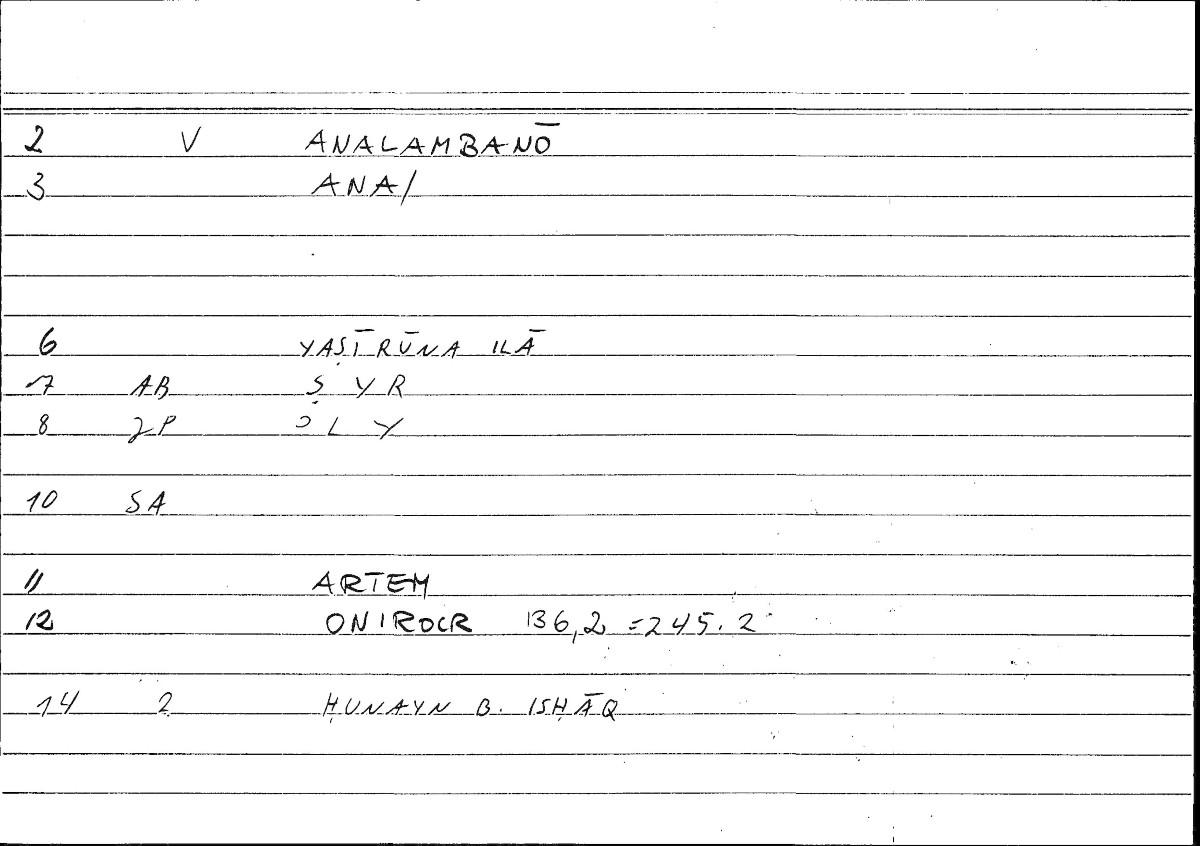 2 V ANALAMBANŌ
3 ANA/
6 YAṢĪRŪNA ILĀ
7 AB Ṣ Y R
8 2P Ɔ L Y
10 SA
11 ARTEM
12 ONIROCR 136,2 = 245.2
14 2 ḤUNAYN B. ISḤĀQ